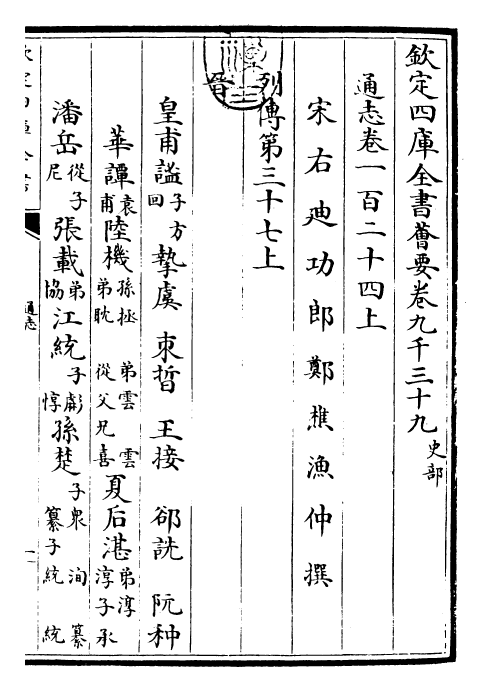 欽定四庫全書薈要卷九千三十九 史部
通志卷一百二十四上
宋右迪功郎鄭樵漁仲撰
列傳第三十七上
晉
皇甫謐 子方回 摯虞 束晳 王接 郤詵 阮种
華譚 袁甫 陸機 孫拯 弟雲 雲弟耽 從父兄喜 夏后湛 弟淳 淳子承
潘岳 從子尼 張載 弟協 江統 子虨 惇 孫楚 子衆 洵 纂 纂子統 統
通志
一